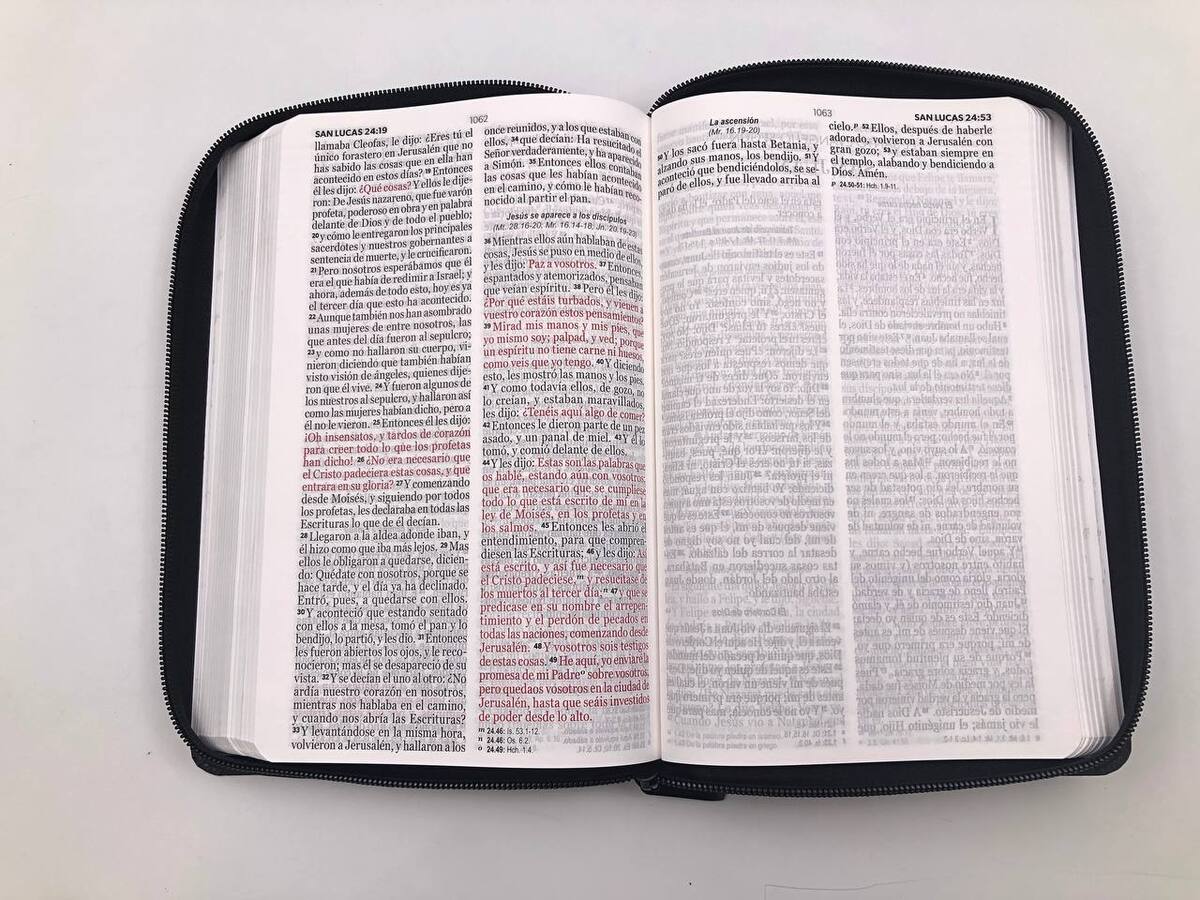 1062
SAN LUCAS 24:19
llamaba Cleofas, le dijo: ¿Eres tú el
único forastero en Jerusalén que no
has sabido las cosas que en ella han
acontecido en estos días? 19 Entonces
él les dijo: ¿Qué cosas? Y ellos le dije-
ron: De Jesús nazareno, que fue varón
profeta, poderoso en obra y en palabra
delante de Dios y de todo el pueblo;
20 y cómo le entregaron los principales
sacerdotes y nuestros gobernantes a
sentencia de muerte, y le crucificaron.
21 Pero nosotros esperábamos que él
era el que había de redimir a Israel; y
ahora, además de todo esto, hoy es ya
el tercer día que esto ha acontecido.
22 Aunque también nos han asombrado
unas mujeres de entre nosotros, las
que antes del día fueron al sepulcro;
23 y como no hallaron su cuerpo, vi-
nieron diciendo que también habían
visto visión de ángeles, quienes dije-
ron que él vive. 24 Y fueron algunos de
los nuestros al sepulcro, y hallaron así
como las mujeres habían dicho, pero a
él no le vieron. 25 Entonces él les dijo:
¡Oh insensatos, y tardos de corazón
para creer todo lo que los profetas
han dicho! 26 ¿No era necesario que
el Cristo padeciera estas cosas, y que
entrara en su gloria? 27 Y comenzando
desde Moisés, y siguiendo por todos
los profetas, les declaraba en todas las
Escrituras lo que de él decían.
28 Llegaron a la aldea adonde iban, y
él hizo como que iba más lejos. 29 Mas
ellos le obligaron a quedarse, dicien-
do: Quédate con nosotros, porque se
hace tarde, y el día ya ha declinado.
Entró, pues, a quedarse con ellos.
30 Y aconteció que estando sentado
con ellos a la mesa, tomó el pan y lo
bendijo, lo partió, y les dio. 31 Entonces
les fueron abiertos los ojos, y le reco-
nocieron; mas él se desapareció de su
vista. 32 Y se decían el uno al otro: ¿No
ardía nuestro corazón en nosotros,
mientras nos hablaba en el camino,
y cuando nos abría las Escrituras?
33 Y levantándose en la misma hora,
volvieron a Jerusalén, y hallaron a los
once reunidos, y a los que estaban con
ellos, 34 que decían: Ha resucitado el
Señor verdaderamente, y ha aparecido
a Simón. 35 Entonces ellos contaban
las cosas que les habían acontecido
en el camino, y cómo le habían reco-
nocido al partir el pan.
Jesús se aparece a los discípulos
(Mt. 28.16-20; Mr. 16.14-18; Jn. 20.19-23)
36 Mientras ellos aún hablaban de estas
cosas, Jesús se puso en medio de ellos,
y les dijo: Paz a vosotros. 37 Entonces,
espantados y atemorizados, pensaban
que veían espíritu. 38 Pero él les dijo:
¿Por qué estáis turbados, y vienen a
vuestro corazón estos pensamientos?
39 Mirad mis manos y mis pies, que
yo mismo soy; palpad, y ved; porque
un espíritu no tiene carne ni huesos,
como veis que yo tengo. 40 Y diciendo
esto, les mostró las manos y los pies.
41 Y como todavía ellos, de gozo, no
lo creían, y estaban maravillados,
les dijo: ¿Tenéis aquí algo de comer?
42 Entonces le dieron parte de un pez
asado, y un panal de miel. 43 Y él lo
tomó, y comió delante de ellos.
44 Y les dijo: Estas son las palabras que
os hablé, estando aún con vosotros:
que era necesario que se cumpliese
todo lo que está escrito de mí en la
ley de Moisés, en los profetas y en
los salmos. 45 Entonces les abrió el
entendimiento, para que compren-
diesen las Escrituras; 46 y les dijo: Así
está escrito, y así fue necesario que
el Cristo padeciese,m y resucitase de
los muertos al tercer día;n 47 y que se
predicase en su nombre el arrepen-
timiento y el perdón de pecados en
todas las naciones, comenzando desde
Jerusalén. 48 Y vosotros sois testigos
de estas cosas. 49 He aquí, yo enviaré la
promesa de mi Padreo sobre vosotros;
pero quedaos vosotros en la ciudad de
Jerusalén, hasta que seáis investidos
de poder desde lo alto.
m 24.46: Is. 53.1-12.
n 24.46: Os. 6.2.
o 24.49: Hch. 1.4.
1063
SAN LUCAS 24:53
La ascensión
(Mr. 16.19-20)
50 Y los sacó fuera hasta Betania, y
alzando sus manos, los bendijo. 51 Y
aconteció que bendiciéndolos, se se-
paró de ellos, y fue llevado arriba al
cielo.p 52 Ellos, después de haberle
adorado, volvieron a Jerusalén con
gran gozo; 53 y estaban siempre en
el templo, alabando y bendiciendo a
Dios. Amén.
p 24.50-51: Hch. 1.9-11.